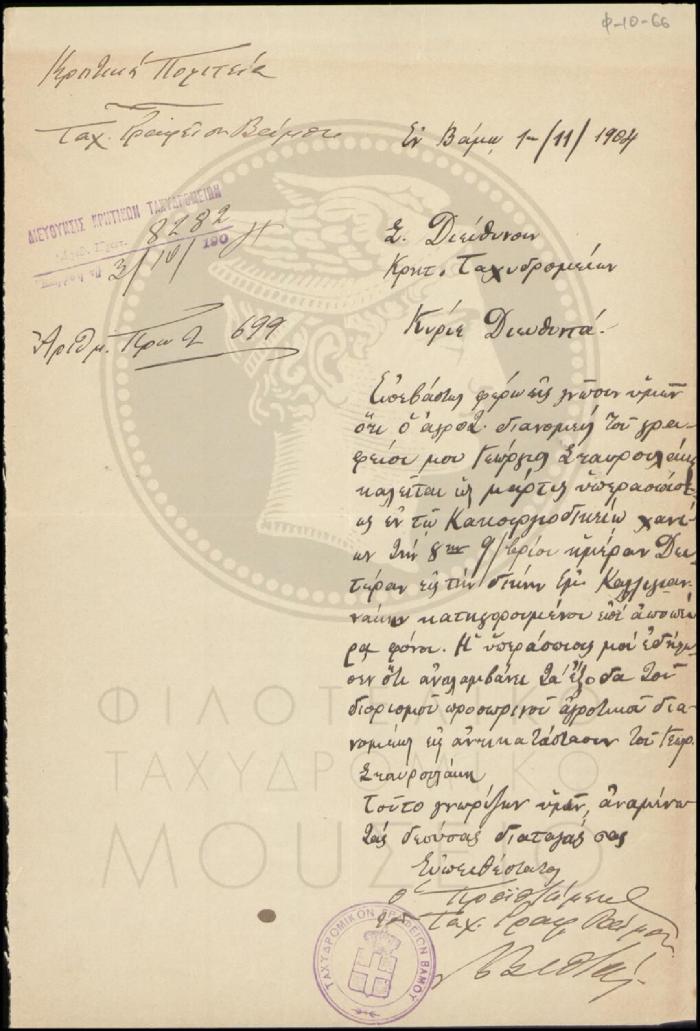 Φ-10-66
Κρητική Πολιτεία
Ταχ. Γραφείον Βάμου
Ἐν Βάμῳ 1-/11/1904
ΔΙΕΥΘΥΝΣΙΣ ΚΡΗΤΙΚΩΝ ΤΑΧΥΔΡΟΜΕΙΩΝ
8282
190
Σ. Διεύθυνσιν
Κρητ. Ταχυδρομείων
Ἀριθμ. Πρωτ 699
Κύριε Διευθυντά.
Εὐσεβάστως φέρω εἰς γνῶσιν ὑμῶν
ὅτι ὁ ἀγροτ. διανομεὺς τοῦ γρα-
φείου μου Γεώργιος Σταυρουλάκης
καλεῖται ὡς μάρτυς ὑπερασπίσε-
ως ἐν τῷ Κακουργιοδικείῳ Χανί-
ων τὴν 8ην 9/βρίου ἡμέραν Δευ-
τέραν εἰς τὴν δίκην
κατηγορουμένου ἐπὶ ἀποπεί-
ρᾳ φόνου. Ἡ ὑπεράσπισις μοι ἐδήλω-
σεν ὅτι ἀναλαμβάνει τὰ ἔξοδα τοῦ
διορισμοῦ προσωρινοῦ ἀγροτικοῦ δια-
νομέως εἰς ἀντικατάστασιν τοῦ Γεωρ.
Σταυρουλάκη
Τοῦτο γνωρίζων ὑμῖν, ἀναμένω
τὰς δεούσας διαταγάς σας
Εὐπειθέστατος
ὁ Προϊστάμενος
Ταχ. Γραφ Βάμου
ΤΑΧΥΔΡΟΜΙΚΟΝ ΓΡΑΦΕΙΟΝ ΒΑΜΟΥ
ΦΙΛΟΤΕΛΙΚΟ
ΤΑΧΥΔΡΟΜΙΚΟ
ΜΟΥΣΕΙΟ